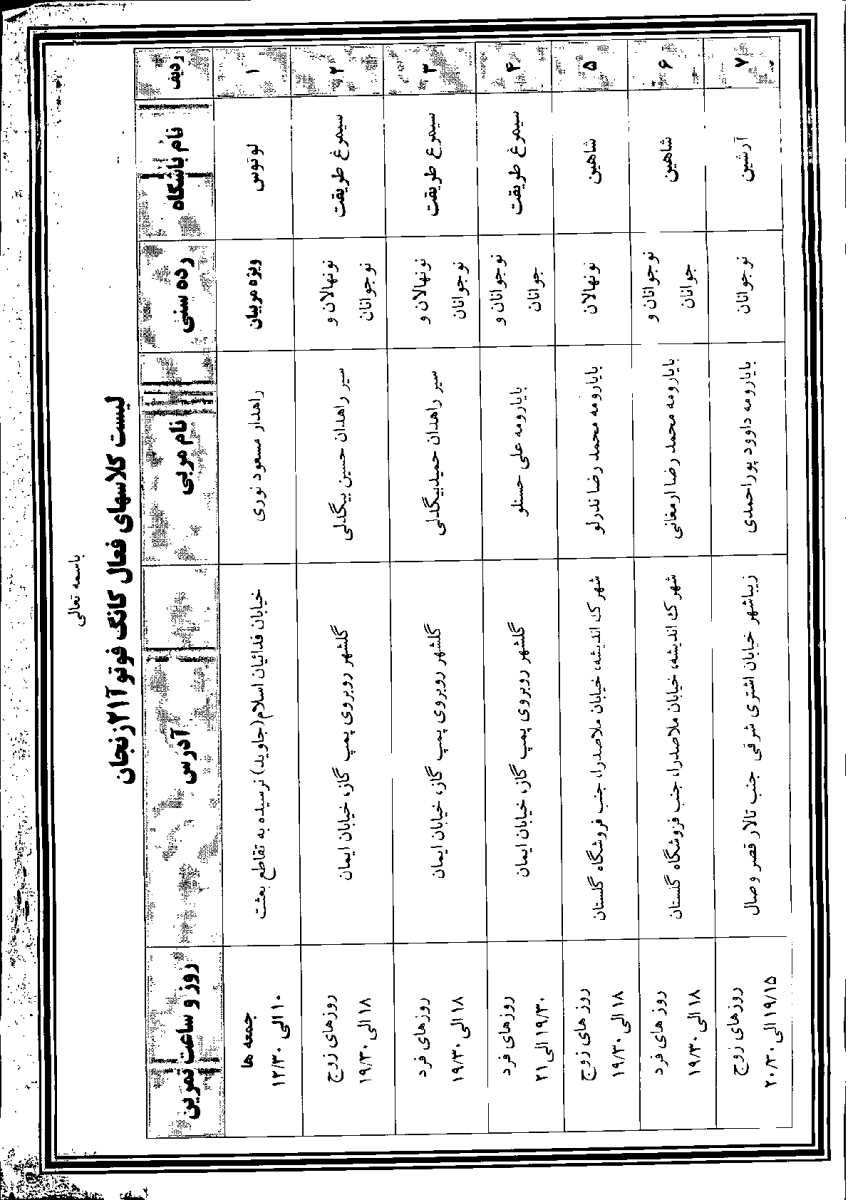 باسمه تعالی
لیست کلاسهای فعال کانگ فوتو آ ۲۱ زنجان
ردیف نام باشگاه رده سنی نام مربی آدرس روز و ساعت تمرین
۱ لوتوس ویژه مربیان راهدار مسعود نوری خیابان فدائیان اسلام(جاوید) نرسیده به تقاطع بعثت جمعه ها
۱۰ الی ۱۲/۳۰
۲ سیمرغ طریقت نونهالان و سیر راهدان حسین بیگدلی گلشهر روبروی پمپ گاز، خیابان ایمان روزهای زوج
نوجوانان ۱۸ الی ۱۹/۳۰
۳ سیمرغ طریقت نونهالان و سیر راهدان حمیدبیگدلی گلشهر روبروی پمپ گاز، خیابان ایمان روزهای فرد
نوجوانان ۱۸ الی ۱۹/۳۰
۴ سیمرغ طریقت نوجوانان و بایارومه علی حسنلو گلشهر روبروی پمپ گاز، خیابان ایمان روزهای فرد
جوانان ۱۹/۳۰ الی ۲۱
۵ شاهین نونهالان بایارومه محمد رضا ندرلو شهرک اندیشه، خیابان ملاصدرا، جنب فروشگاه گلستان روزهای زوج
۱۸ الی ۱۹/۳۰
۶ شاهین نوجوانان و بایارومه محمد رضا ارمغانی شهرک اندیشه، خیابان ملاصدرا، جنب فروشگاه گلستان روزهای فرد
جوانان ۱۸ الی ۱۹/۳۰
۷ آرشین نوجوانان بایارومه داوود پوراحمدی زیباشهر خیابان اشتری شرقی جنب تالار قصر وصال روزهای زوج
۱۹/۱۵ الی ۲۰/۳۰